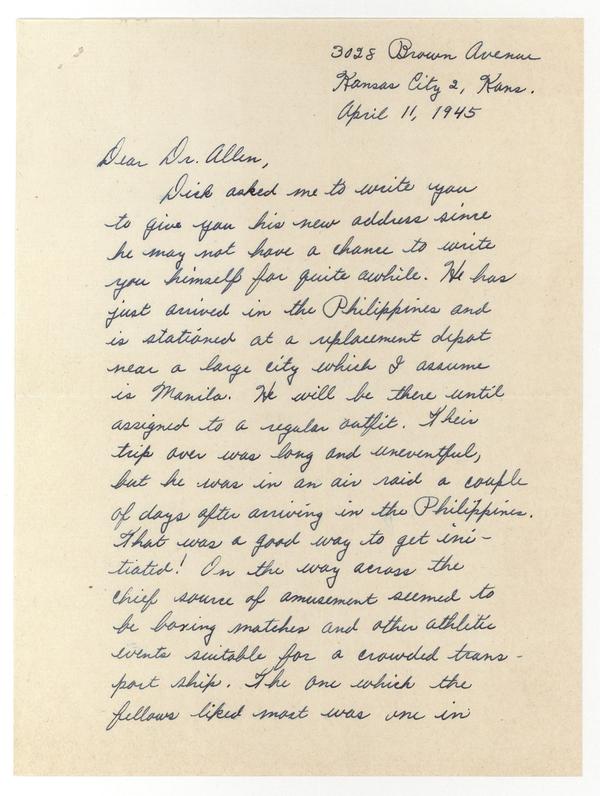 3028 Brown Avenue
Kansas City 2, Kans.
April 11, 1945
Dear Dr. Allen,
Dick asked me to write you
to give you his new address since
he may not have a chance to write
you himself for quite awhile. He has
just arrived in the Philippines and
is stationed at a replacement depot
near a large city which I assume
is Manila. He will be there until
assigned to a regular outfit. Their
trip over was long and uneventful,
but he was in an air raid a couple
of days after arriving in the Philippines.
That was a good way to get ini-
tiated! On the way across the
chief source of amusement seemed to
be boxing matches and other athletic
events suitable for a crowded trans-
port ship. The one which the
fellows liked most was one in